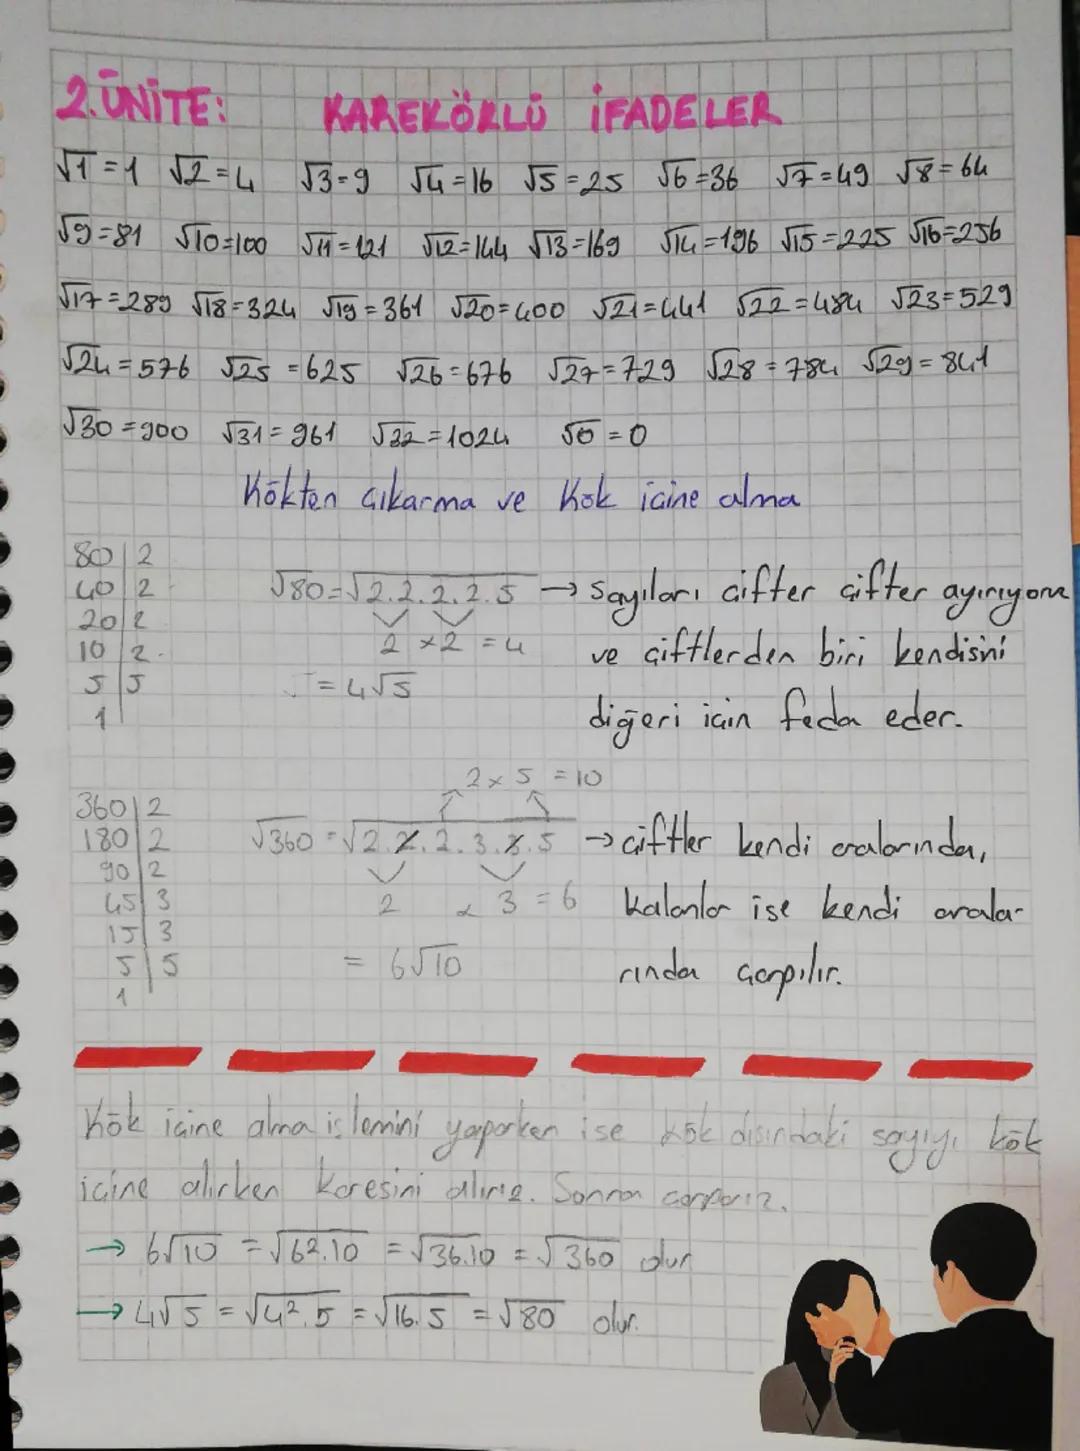 2.ÜNİTE: KAREKÖKLÜ İFADELER
√1=1 √2=4 √3=9 √4=16 √5=25 √6=36 √7=49 √8=64
√9=81 √10=100 √11=121 √12=144 √13=169 √14=196 √15=225 √16=256
√17=289 √18=324 √19=361 √20=400 √21=441 √22=484 √23=529
√24=576 √25=625 √26=676 √27=729 √28=784 √29=841
√30=900 √31=961 √32=1024 √0=0
Kökten çıkarma ve Kök içine alma
80|2
40|2
20|2
10|2
5|5
1
√80=√2.2.2.2.5 → Sayıları çifter çifter ayırıyoruz
2 x2 =4 ve çiftlerden biri kendisini
=4√5 diğeri için feda eder.
2x5=10
360|2
180|2
90|2
45|3
15|3
5|5
1
√360=√2.2.2.3.3.5 → çiftler kendi aralarında,
2 x 3 =6 kalanlar ise kendi arala-
= 6√10 rında çarpılır.
Kök içine alma işlemini yaparken ise kök dışındaki sayıyı kök
içine alırken karesini alırız. Sonra çarparız.
→ 6√10 =√6².10 =√36.10 =√360 olur
→ 4√5 =√4².5 =√16.5 =√80 olur.